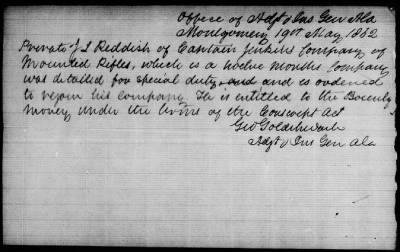 Office of Adjt & Ins Gen Ala
Montgomery 19th May 1862
Private J L Reddish of Captain Jenkins Company of
Mounted Rifles, which is a twelve months Company
was detailed for special duty, and and is ordered
to rejoin his company. He is entitled to the Bounty
money under the terms of the Conscript Act
Geo Goldthwaite
Adjt & Ins Gen Ala